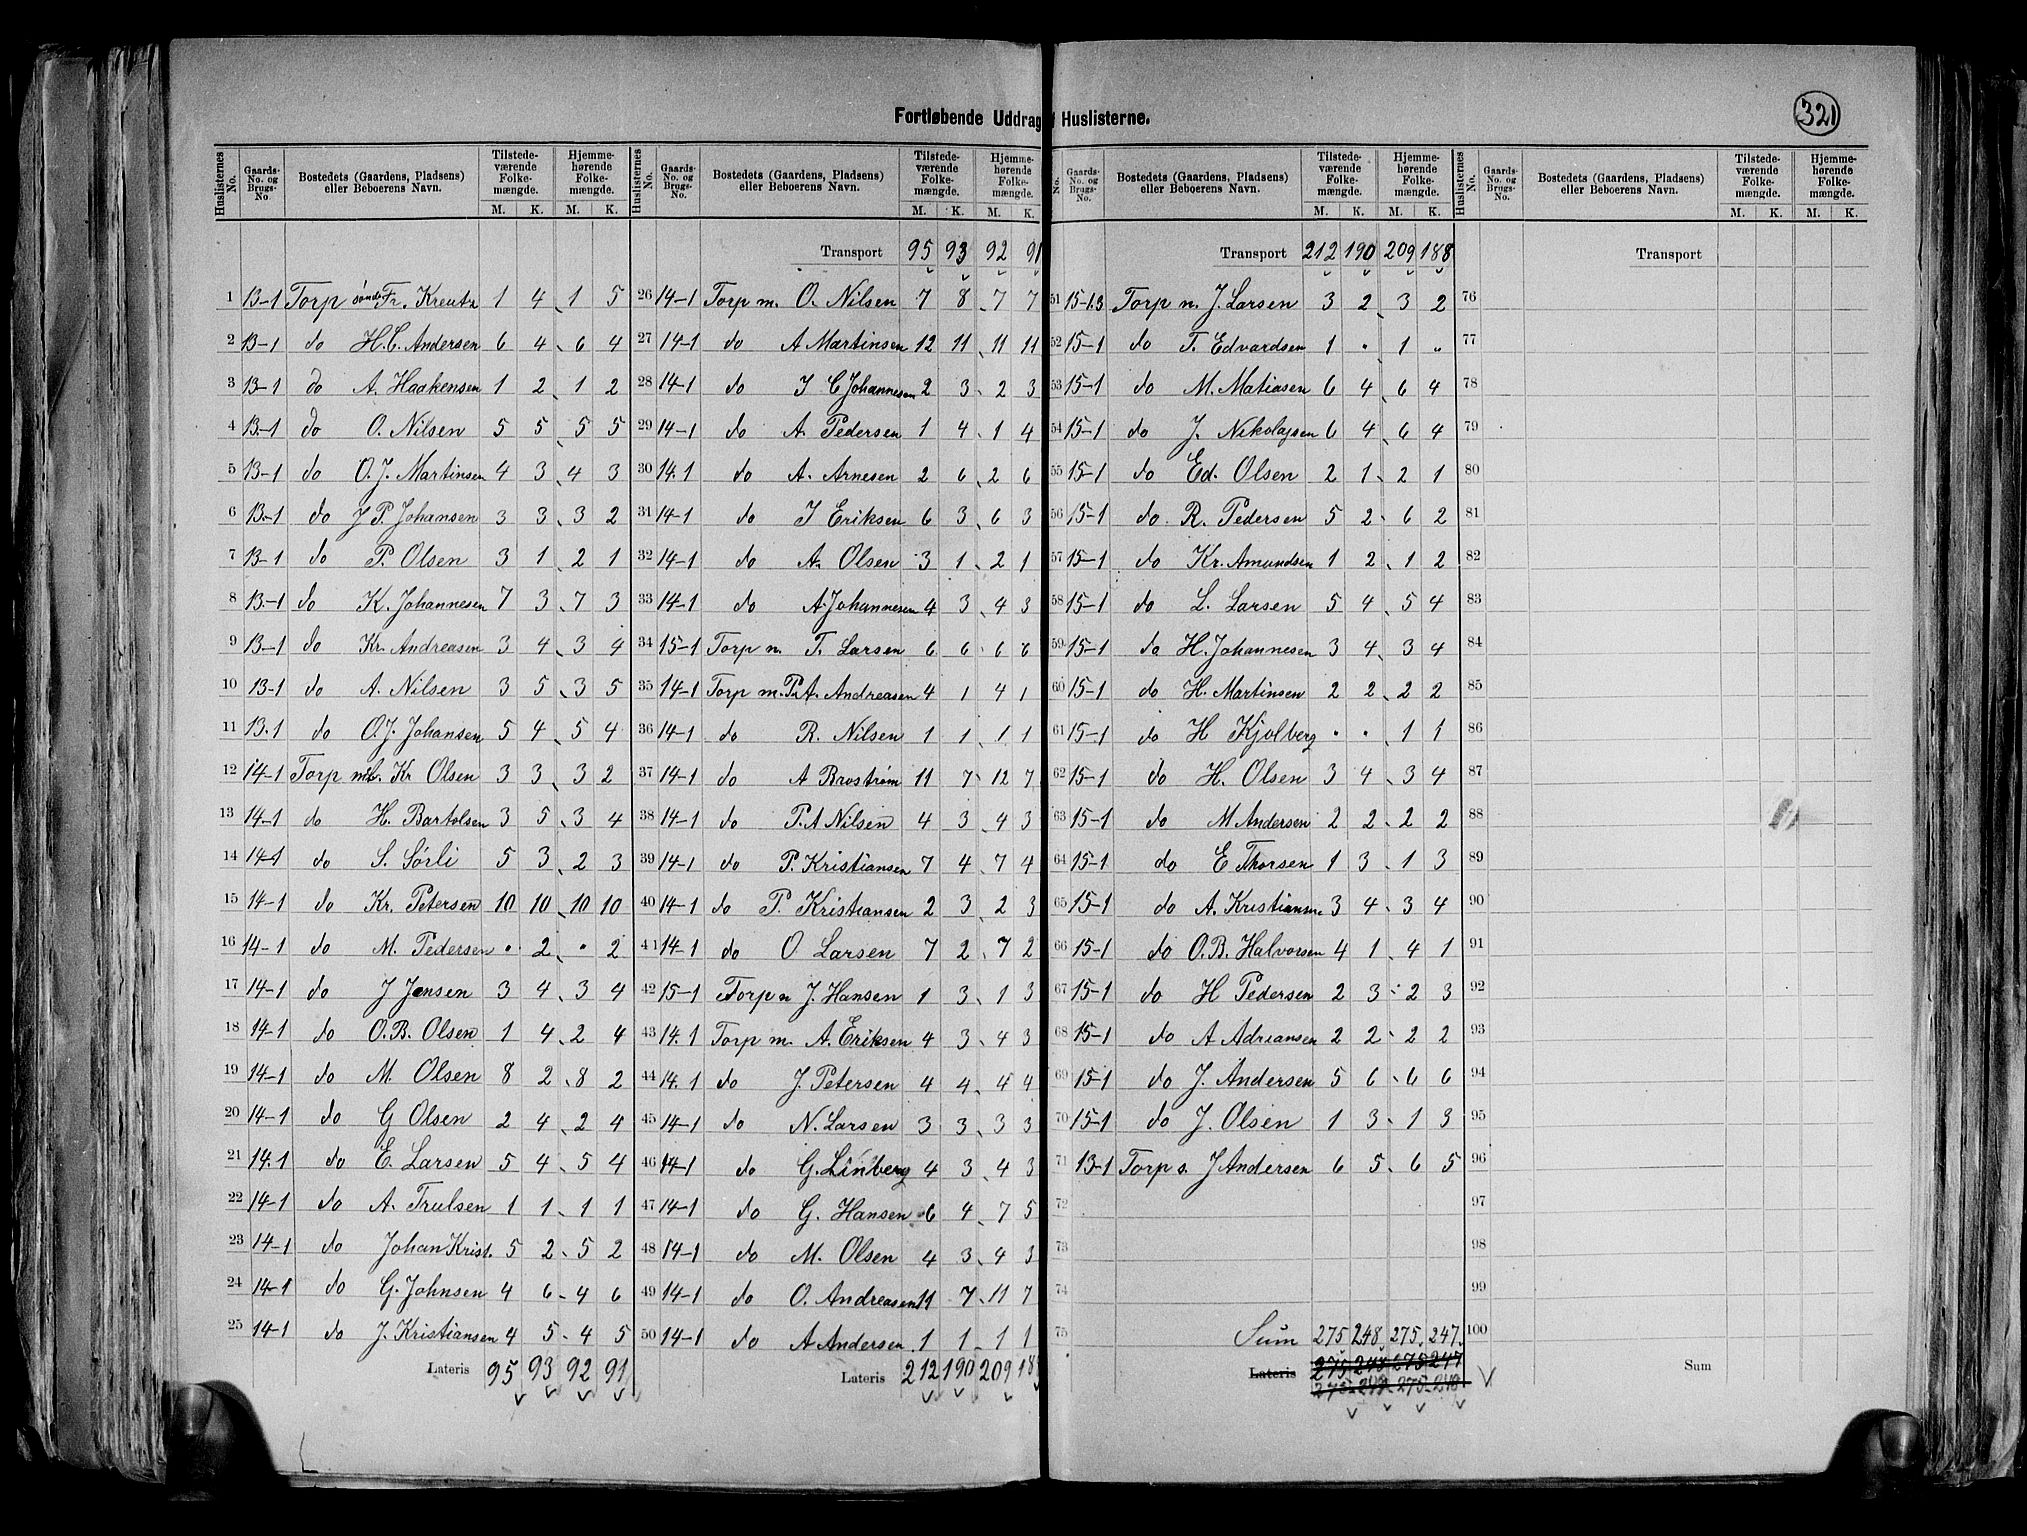 Fortløbende Uddrag f Huslisterne.
321
Huslisternes No. | Gaards-No. og Brugs-No | Bostedets (Gaardens, Pladsens) eller Beboerens Navn. | Tilstedeværende Folkemængde. M. K. | Hjemmehørende Folkemængde. M. K.
1 13-1 Torp søndr Fr. Kreutz 1 4 1 5
2 13-1 do H.C. Andersen 6 4 6 4
3 13-1 do A. Haakensen 1 2 1 2
4 13-1 do O. Nilsen 5 5 5 5
5 13-1 do O.J. Martinsen 4 3 4 3
6 13-1 do J P. Johansen 3 3 3 2
7 13-1 do P. Olsen 3 1 2 1
8 13-1 do K. Johannesen 7 3 7 3
9 13-1 do Kr. Andreasen 3 4 3 4
10 13-1 do A. Nilsen 3 5 3 5
11 13.1 do O.J. Johansen 5 4 5 4
12 14-1 Torp mlb. Kr Olsen 3 3 3 2
13 14-1 do H. Bartolsen 3 5 3 4
14 14-1 do S. Sørli 5 3 2 3
15 14-1 do Kr. Petersen 10 10 10 10
16 14-1 do M. Pedersen " 2 " 2
17 14-1 do J Jensen 3 4 3 4
18 14-1 do O.B. Olsen 1 4 2 4
19 14-1 do M. Olsen 8 2 8 2
20 14-1 do G Olsen 2 4 2 4
21 14.1 do E. Larsen 5 4 5 4
22 14-1 do A. Trulsen 1 1 1 1
23 14-1 do Johan Krist. 5 2 5 2
24 14-1 do G. Johnsen 4 6 4 6
25 14-1 do J. Kristiansen 4 5 4 5
Lateris 95 93 92 91
Huslisternes No. | Gaards-No. og Brugs-No. | Bostedets (Gaardens, Pladsens) eller Beboerens Navn. | Tilstedeværende Folkemængde. M. K. | Hjemmehørende Folkemængde. M. K.
Transport 95 93 92 91
26 14-1 Torp m. O. Nilsen 7 8 7 7
27 14-1 do A Martinsen 12 11 11 11
28 14-1 do J C Johannesen 2 3 2 3
29 14-1 do A. Pedersen 1 4 1 4
30 14.1 do A. Arnesen 2 6 2 6
31 14-1 do J Eriksen 6 3 6 3
32 14-1 do A. Olsen 3 1 2 1
33 14-1 do A Johannesen 4 3 4 3
34 15-1 Torp n. T. Larsen 6 6 6 6
35 14-1 Torp m. P.A. Andreasen 4 1 4 1
36 14-1 do R. Nilsen 1 1 1 1
37 14-1 do A Brostrøm 11 7 12 7
38 14-1 do P.A Nilsen 4 3 4 3
39 14-1 do P. Kristiansen 7 4 7 4
40 14-1 do P. Kristiansen 2 3 2 3
41 14-1 do O Larsen 7 2 7 2
42 15-1 Torp n J. Hansen 1 3 1 3
43 14.1 Torp m. A. Eriksen 4 3 4 3
44 14.1 do J. Petersen 4 4 4 4
45 14-1 do N. Larsen 3 3 3 3
46 14-1 do G. Linberg 4 3 4 3
47 14-1 do G. Hansen 6 4 7 5
48 14-1 do M. Olsen 4 3 4 3
49 14-1 do O. Andreasen 11 7 11 7
50 14-1 do A Andersen 1 1 1 1
Lateris 212 190 209 18
No. | Gaards-No. og Brugs-No. | Bostedets (Gaardens, Pladsens) eller Beboerens Navn. | Tilstedeværende Folkemængde. M. K. | Hjemmehørende Folkemængde. M. K.
Transport 212 190 209 188
51 15-1.3 Torp n. J. Larsen 3 2 3 2
52 15-1 do T. Edvardsen 1 " 1 "
53 15-1 do M. Matiasen 6 4 6 4
54 15-1 do J. Nikolajsen 6 4 6 4
55 15-1 do Ed. Olsen 2 1 2 1
56 15-1 do. R. Pedersen 5 2 6 2
57 15-1 do Kr. Amundsen 1 2 1 2
58 15-1 do L. Larsen 5 4 5 4
59 15-1 do H. Johannesen 3 4 3 4
60 15-1 do H. Martinsen 2 2 2 2
61 15-1 do H Kjolberg " " 1 1
62 15-1 do H. Olsen 3 4 3 4
63 15-1 do M Andersen 2 2 2 2
64 15-1 do E Thorsen 1 3 1 3
65 15-1 do A. Kristianse 3 4 3 4
66 15-1 do O.B. Halvorsen 4 1 4 1
67 15-1 do H Pedersen 2 3 2 3
68 15-1 do A Adriansen 2 2 2 2
69 15-1 do J. Andersen 5 6 6 6
70 15-1 do J. Olsen 1 3 1 3
71 13-1 Torp s. J Andersen 6 5 6 5
72
73
74
75 Sum 275 248 275 247
Lateris 275 248 275 247
275 248 275 248
Huslisternes No. | Gaards-No. og Brugs-No. | Bostedets (Gaardens, Pladsens) eller Beboerens Navn. | Tilstedeværende Folkemængde. M. K. | Hjemmehørende Folkemængde. M. K.
Transport
76
77
78
79
80
81
82
83
84
85
86
87
88
89
90
91
92
93
94
95
96
97
98
99
100
Sum